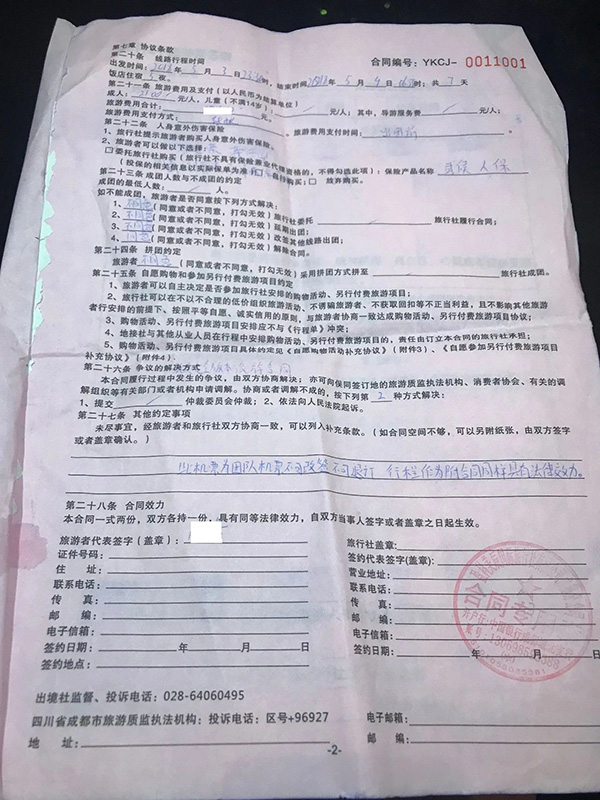 第七章 协议条款
合同编号：YKCJ- 0011001
第二十条 线路行程时间
出发时间： 年 5 月 3 日 ，结束时间 年 5 月 9 日 时；共 7 天
饭店住宿 5 夜。
第二十一条 旅游费用及支付（以人民币为结算单位）
成人： 元/人；儿童（不满14岁）： 元/人；其中，导游服务费 元/人；
旅游费用合计： 元。
旅游费用支付方式： 旅游费用支付时间：
第二十二条 人身意外伤害保险
1、旅行社提示旅游者购买人身意外伤害保险。
2、旅游者可以做以下选择：
□委托旅行社购买（旅行社不具有保险兼业代理资格的，不得勾选此项）：保险产品名称 人保
（投保的相关信息以实际保单为准） 自行购买；□ 放弃购买。
第二十三条 成团人数与不成团的约定
成团的最低人数： 人。
如不能成团，旅游者是否同意按下列方式解决：
1、不同意（同意或者不同意，打勾无效）旅行社委托 旅行社履行合同；
2、不同意（同意或者不同意，打勾无效）延期出团；
3、不同意（同意或者不同意，打勾无效）改签其他线路出团；
4、同意（同意或者不同意，打勾无效）解除合同。
第二十四条 拼团约定
旅游者 不同意（同意或者不同意，打勾无效）采用拼团方式拼至 旅行社成团。
第二十五条 自愿购物和参加另行付费旅游项目约定
1、旅游者可以自主决定是否参加旅行社安排的购物活动、另行付费旅游项目；
2、旅行社可以在不以不合理的低价组织旅游活动、不诱骗旅游者、不获取回扣等不正当利益，且不影响其他旅游
者行安排的前提下，按照平等自愿、诚实信用的原则，与旅游者协商一致达成购物活动、另行付费旅游项目协议；
3、购物活动、另行付费旅游项目安排应不与《行程单》冲突；
4、地接社及其他从业人员在行程中安排购物活动、另行付费旅游项目的，责任由订立本合同的旅行社承担；
5、购物活动、另行付费旅游项目具体约定见《自愿购物活动补充协议》（附件3）、《自愿参加另行付费旅游项目
补充协议》（附件4）.
第二十六条 争议的解决方式
本合同履行过程中发生的争议，由双方协商解决；亦可向合同签订地的旅游质监执法机构、消费者协会、有关的调
解组织等有关部门或者机构申请调解。协商或者调解不成的，按下列第 2 种方式解决：
1、提交 仲裁委员会仲裁；2、依法向人民法院起诉。
第二十七条 其他约定事项
未尽事宜，经旅游者和旅行社双方协商一致，可以列入补充条款。（如合同空间不够，可以另附纸张，由双方签字
或者盖章确认。）
机票为团队机票不可改签不可退订 行程作为附合同同样具有法律效力。
第二十八条 合同效力
本合同一式两份，双方各持一份，具有同等法律效力，自双方当事人签字或者盖章之日起生效。
旅游者代表签字（盖章）：
旅行社盖章：
证件号码：
签约代表签字(盖章)：
住 址：
营业地址：
联系电话：
联系电话：
传 真：
传 真：
邮 编：
邮 编：
电子信箱：
电子信箱：
签约日期： 年 月 日
签约日期： 年 月 日
签约地点：
合同专
出境社监督、投诉电话：028-64060495
四川省成都市旅游质监执法机构：投诉电话：区号+96927
电子邮箱：
地 址：
邮 编：
-2-